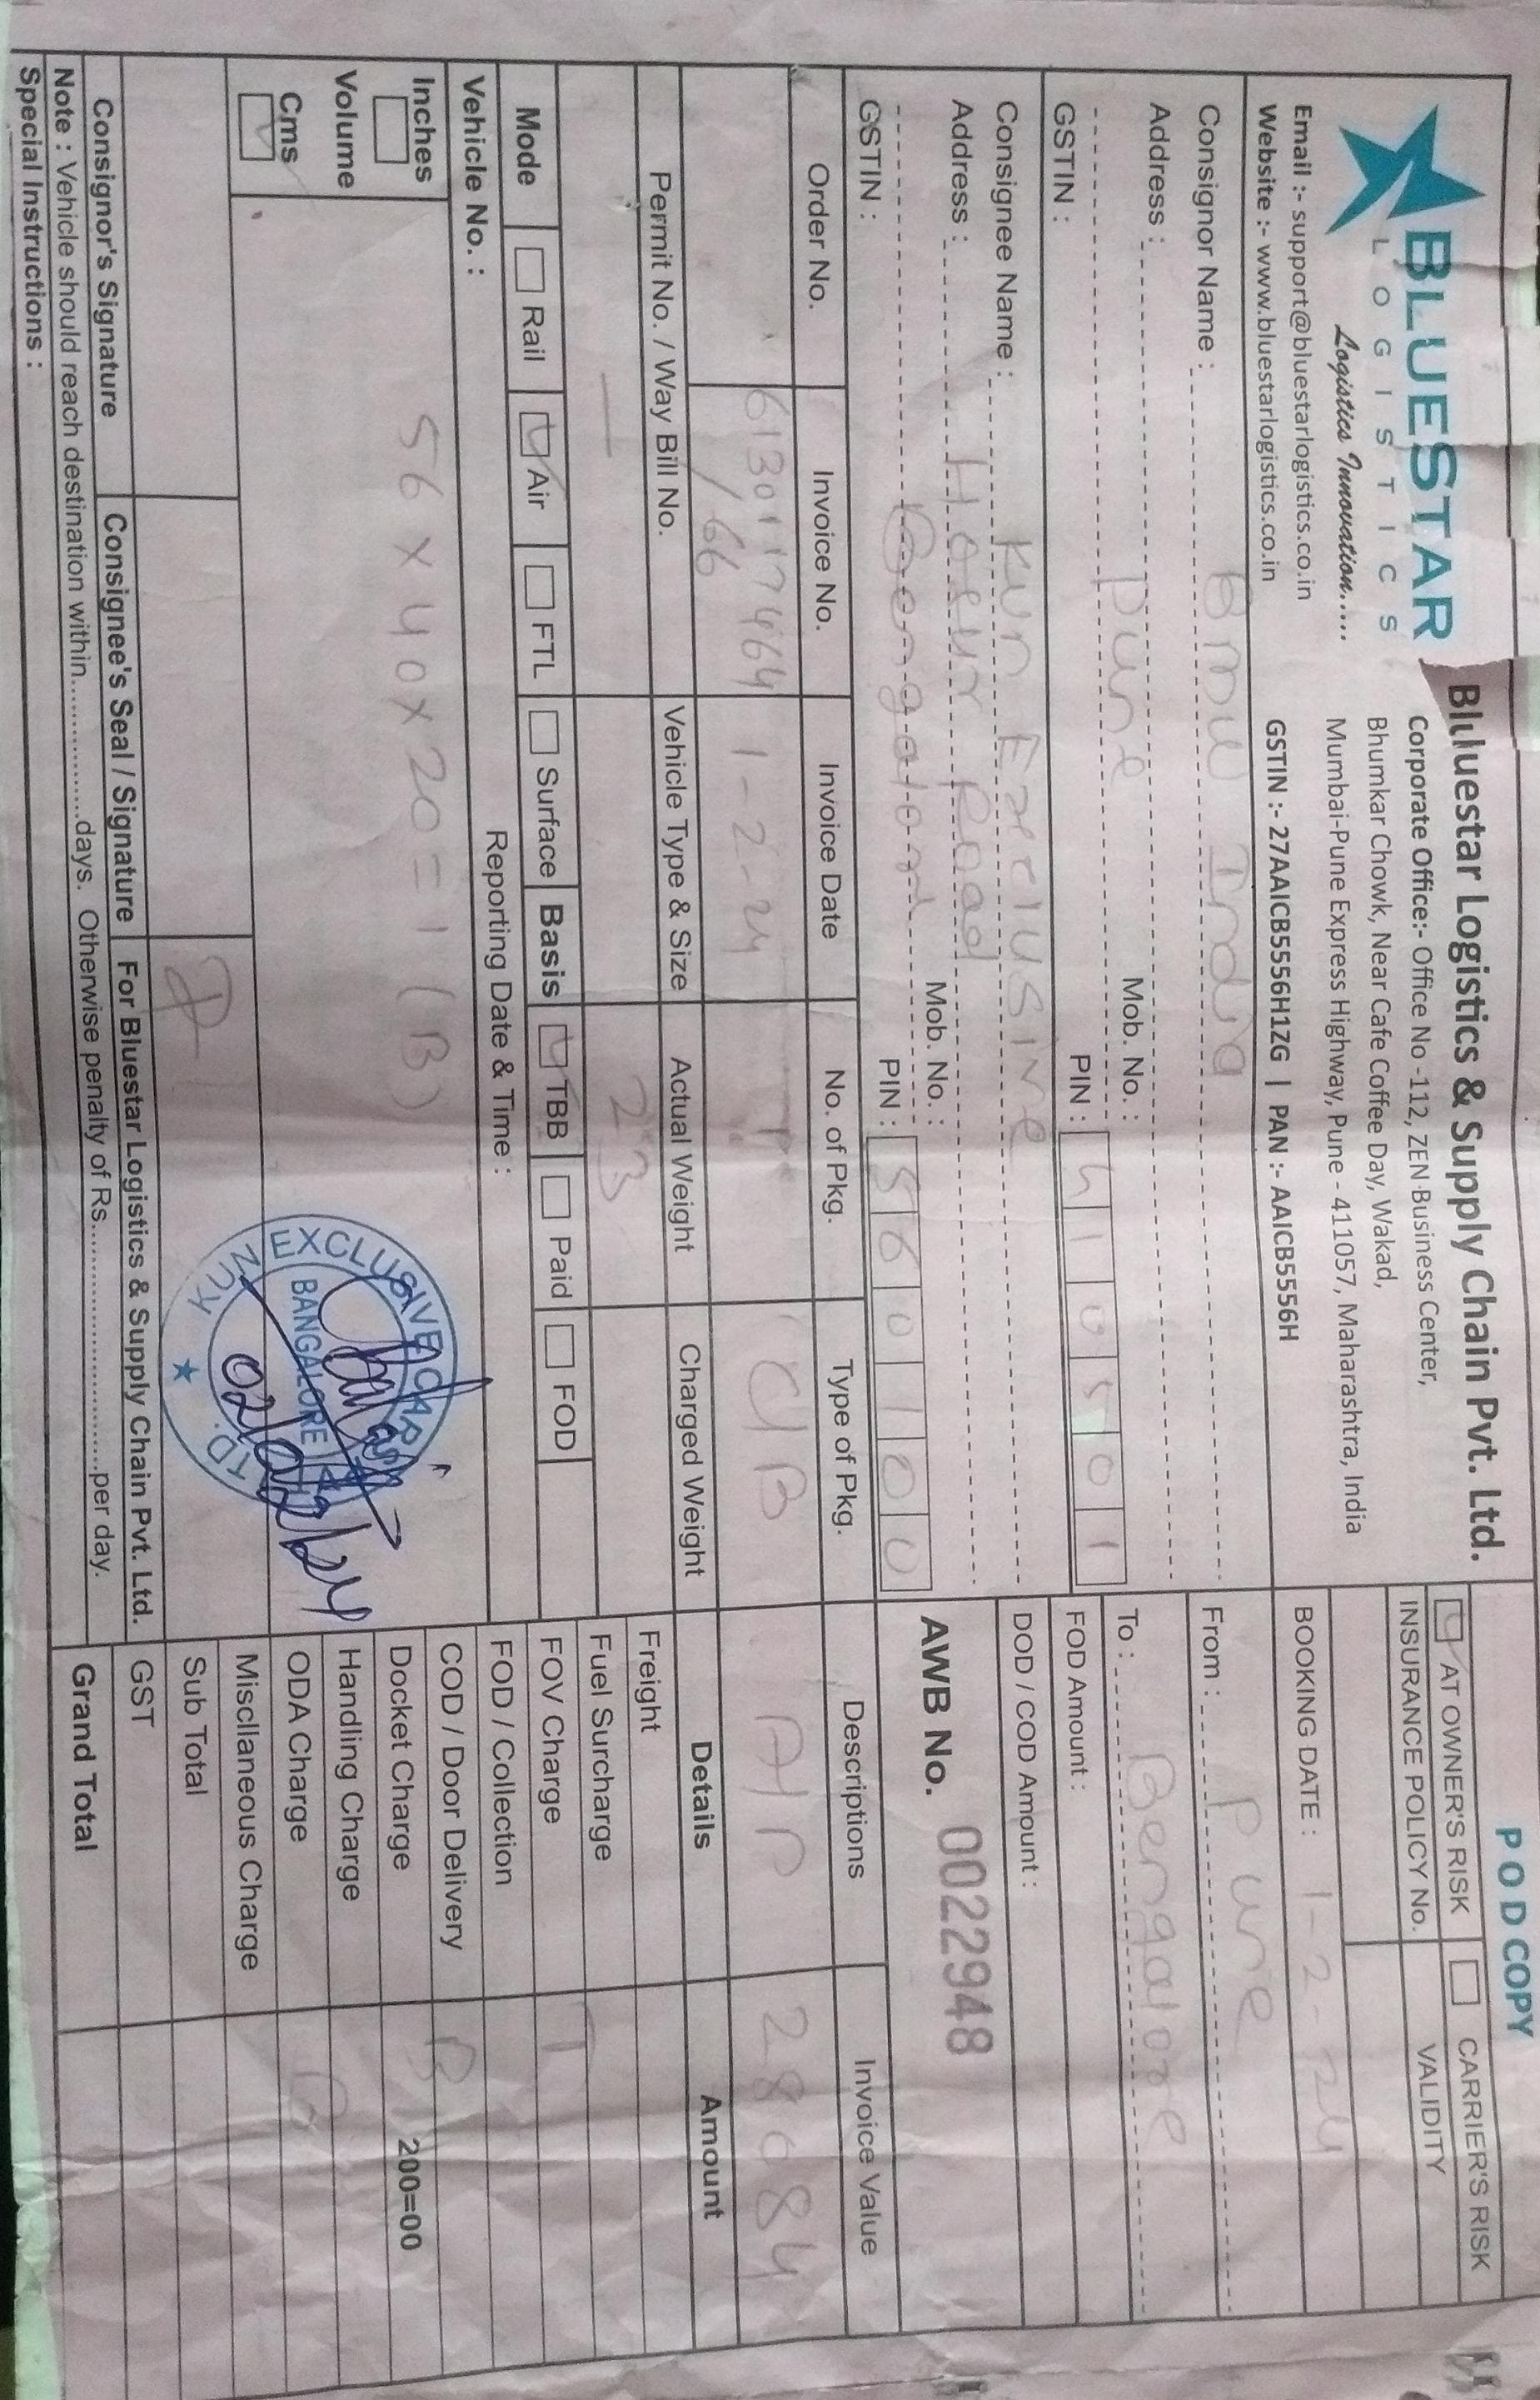 POD COPY
BLUESTAR
LOGISTICS
Logistics Innovation.....
Email :- support@bluestarlogistics.co.in
Website :- www.bluestarlogistics.co.in
Bluestar Logistics & Supply Chain Pvt. Ltd.
Corporate Office:- Office No -112, ZEN Business Center,
Bhumkar Chowk, Near Cafe Coffee Day, Wakad,
Mumbai-Pune Express Highway, Pune - 411057, Maharashtra, India
GSTIN :- 27AAICB5556H1ZG | PAN :- AAICB5556H
AT OWNER'S RISK CARRIER'S RISK
INSURANCE POLICY No. VALIDITY
BOOKING DATE : 1-2-24
Consignor Name : Bmw India
Address : Pune
Mob. No. :
GSTIN : PIN : 411 0 5 0 1
From : Pune
To : Bengalore
FOD Amount :
DOD / COD Amount :
Consignee Name : Kun Exclusive
Address : Hosur Road
Bengalore
Mob. No. :
GSTIN : PIN : 560100
AWB No. 00229948
Order No. Invoice No. Invoice Date No. of Pkg. Type of Pkg. Descriptions Invoice Value
6130117464 1-2-24 1 CB Air 28084
/66
Permit No. / Way Bill No. Vehicle Type & Size Actual Weight Charged Weight Details Amount
23
Mode Rail Air FTL Surface Basis TBB Paid FOD
Vehicle No. : Reporting Date & Time :
Inches
Volume
Cms
56 x 40 x 20 = 1 (B)
KUN EXCLUSIVE CAR LTD.
BANGALORE
02/02/24
Freight
Fuel Surcharge
FOV Charge
FOD / Collection
COD / Door Delivery
Docket Charge 200=00
Handling Charge
ODA Charge
Miscllaneous Charge
Sub Total
GST
Grand Total
Consignor's Signature Consignee's Seal / Signature For Bluestar Logistics & Supply Chain Pvt. Ltd.
Note : Vehicle should reach destination within...............days. Otherwise penalty of Rs...............................per day.
Special Instructions :